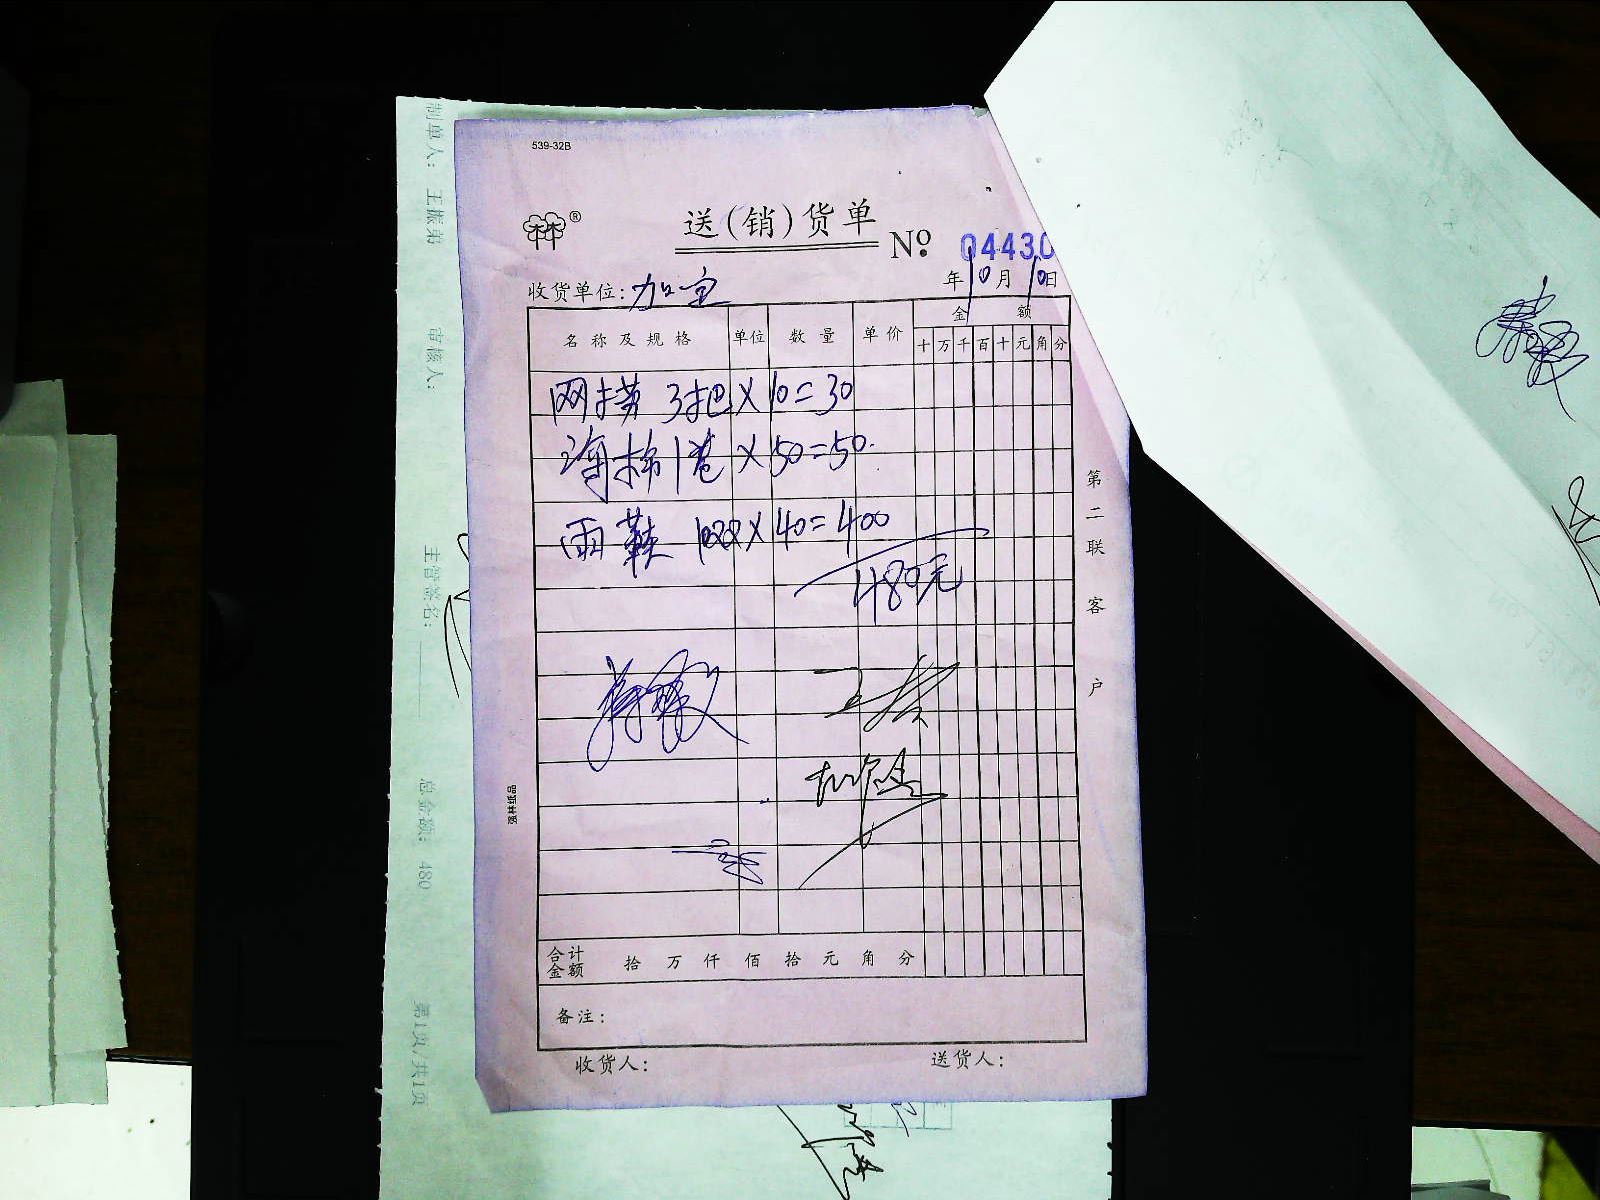 539-32B
送(销)货单
№ 04430
年10月10日
收货单位:加宝
名称及规格 单位 数量 单价 金额
十 万 千 百 十 元 角 分
网捞 3把×10=30
海棉1卷×50=50.
雨鞋 10双×40=400
480元
第二联 客户
强林纸品
合计金额 拾 万 仟 佰 拾 元 角 分
备注:
收货人: 送货人:
制单人: 王振弟 审核人: 主管签名: 总金额: 480 第1页/共1页